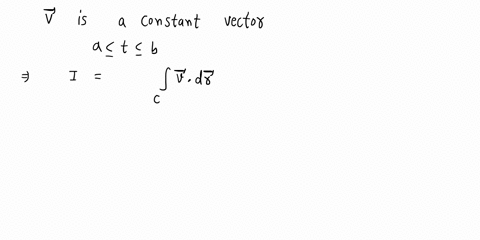 v⃗ is a constant vector
a ≤ t ≤ b
⇒ I = ∫_C v⃗ . dr⃗